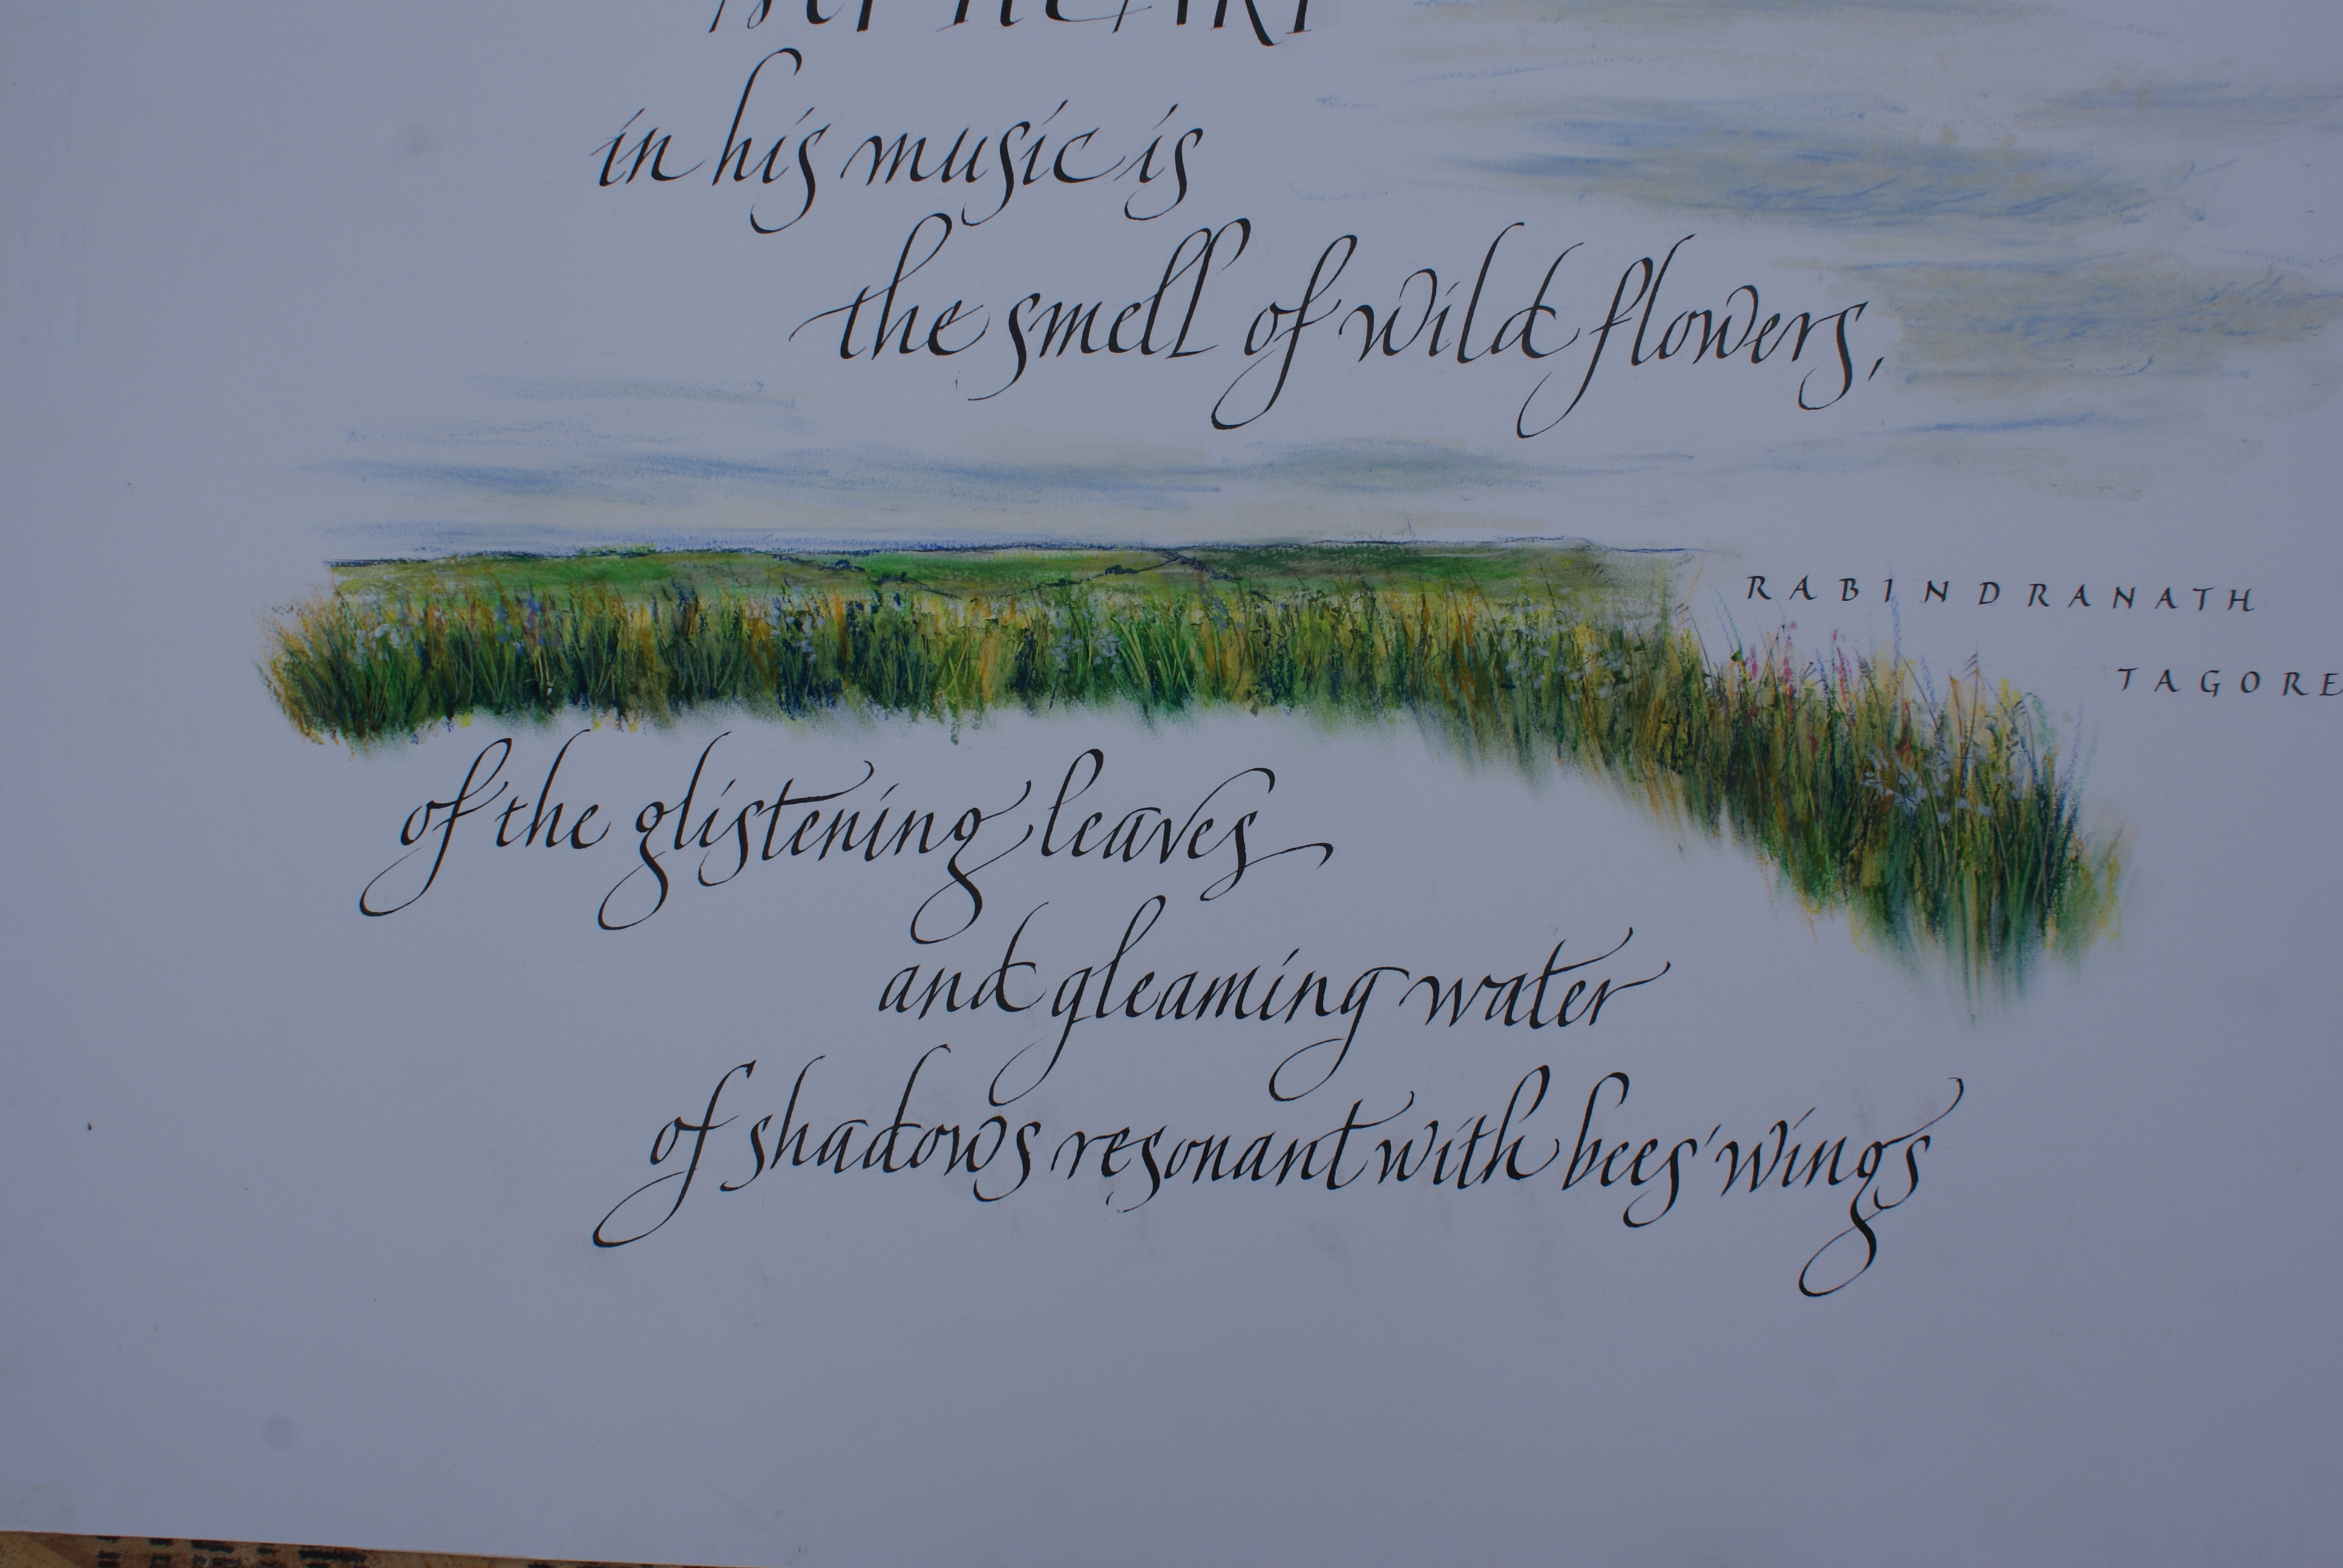 MY HEART
in his music is
the smell of wild flowers,
RABINDRANATH
TAGORE
of the glistening leaves
and gleaming water
of shadows resonant with bees' wings